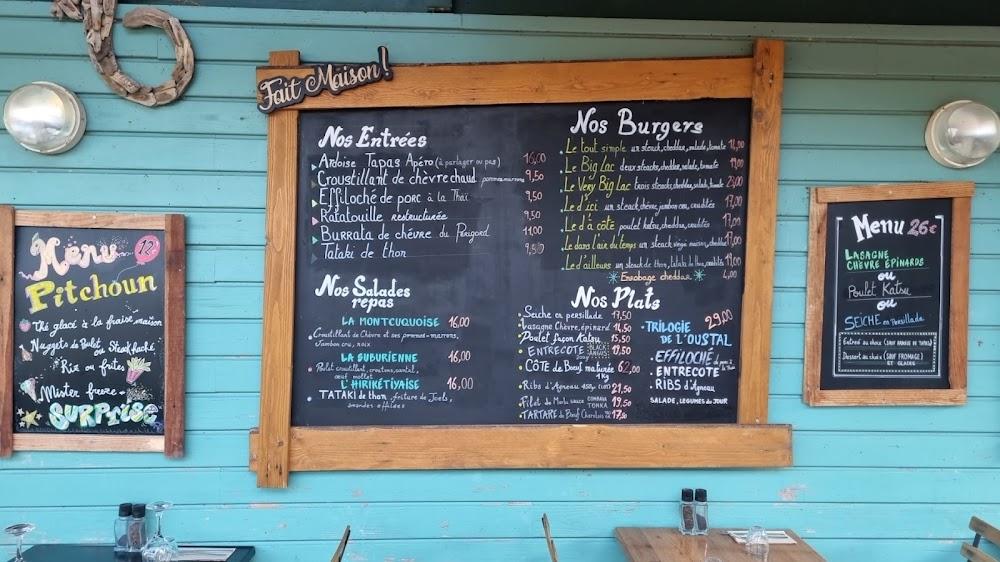 Fait Maison !
Menu 12
Pitchoun
Thé glacé à la fraise maison
Nuggets de Poulet
ou Steak haché
Riz ou frites
Mister freeze
SURPRISE
Nos Entrées
Ardoise Tapas Apéro (à partager ou pas) 16,00
Croustillant de chèvre chaud pommes marrons 9,50
Effiloché de porc à la Thaï 9,50
Ratatouille restructurée 9,50
Burrata de chèvre du Périgord 11,00
Tataki de thon 9,50
Nos Salades
repas
LA MONTCUQUOISE 16,00
Croustillant de Chèvre et ses pommes-marrons,
Jambon cru, noix
LA BUBURIENNE 16,00
Poulet croustillant, croutons, cantal,
oeuf mollet
L'HIRIKÉTIYAISE 16,00
TATAKI de thon, friture de Joels,
amandes effilées
Nos Burgers
Le tout simple un steack, cheddar, salade, tomate
Le Big Lac deux steacks, cheddar, salade, tomate 19,00
Le Very Big Lac trois steacks, cheddar, salade, tomate 23,00
Le d'ici un steack, chèvre, jambon cru, crudités 17,00
Le d'à côté poulet katsu, cheddar, crudités 17,00
Le dans l'air du temps un steack végé maison, cheddar 17,00
Le d'ailleurs un steack de thon, tataki de thon, crudités 19,00
Enrobage cheddar 4,00
Nos Plats
Seiche en persillade 17,50
Lasagne Chèvre, épinard 14,50
Poulet façon Katsu 15,50
ENTRECOTE BLACK ANGUS
CÔTE de Bœuf maturée 62,00
1Kg
Ribs d'Agneau 21,50
Filet de Merlu sauce COMBAVA TONKA 19,50
TARTARE de Bœuf Charolais 17,50
TRILOGIE 29,00
DE L'OUSTAL
EFFILOCHÉ de porc à la Thaï
ENTRECOTE
RIBS d'Agneau
SALADE, LEGUMES du JOUR
Menu 26€
LASAGNE
CHÈVRE ÉPINARDS
ou
Poulet Katsu
ou
SEICHE en Persillade
Entrée au choix (SAUF ARDOISE DE TAPAS)
Dessert au choix (SAUF FROMAGE)
ET GLACES